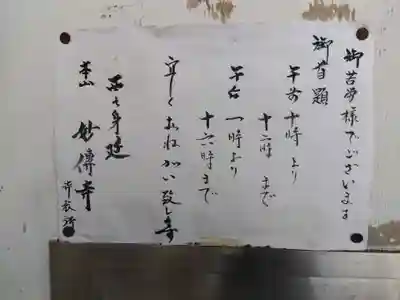 御苦労様でございます
御首題
午前十時より
十二時まで
午后一時より
十六時まで
宜しくおねがい致します
西之身延
本山 妙傳寺